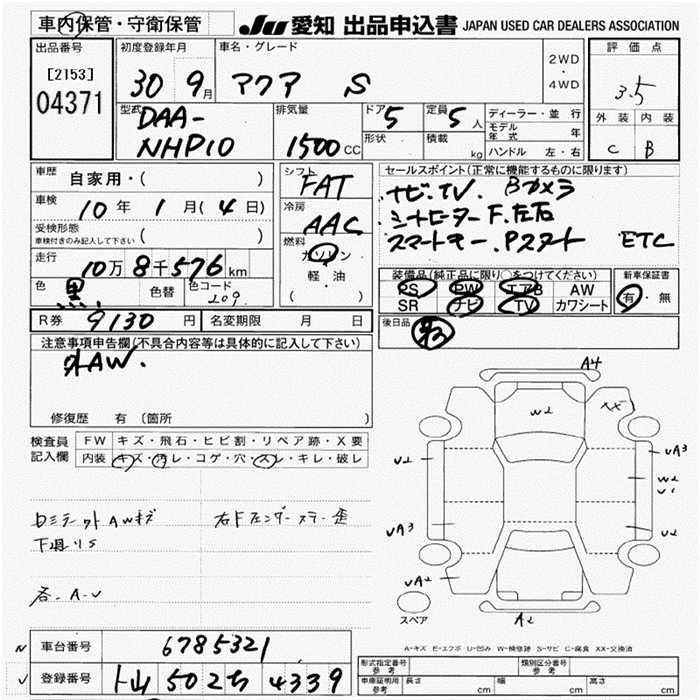 車内保管・守衛保管
JU 愛知 出品申込書 JAPAN USED CAR DEALERS ASSOCIATION
出品番号
[2153]
04371
初度登録年月
30 9月
車名・グレード
アクア S
2WD
・
4WD
評価点
3.5
外装 内装
C B
型式
DAA-
NHP10
排気量
1500cc
ドア
5
定員
5人
形状
積載
kg
ディーラー・並行
モデル年式 年
ハンドル 左・右
車歴
自家用・( )
車検
10年 1月(4日)
受検形態
車検付きのみ記入して下さい ( )
走行
10万8千576km
色
黒
色替
色コード
209
シフト
FAT
冷房
AAC
燃料
ガソリン
軽・油
( )
セールスポイント(正常に機能するものに限ります)
ナビ.TV. Bカメラ
シートヒーター F.左右
スマートキー. Pスタート ETC
装備品(純正品に限り○をつけてください)
PS PW エアB AW
SR ナビ TV カワシート
新車保証書
有・無
後日品
R券 9130円
名変期限 月 日
注意事項申告欄(不具合内容等は具体的に記入して下さい)
外AW.
修復歴 有 (箇所
検査員
記入欄
FW キズ・飛石・ヒビ割・リペア跡・X要
内装 キズ・汚レ・コゲ・穴・スレ・キレ・破レ
AWキズ
右Fフェンダー 歪
下廻りS
各. A-U
A4
W2
XX
U2
UA3
W2
U1
UA3
U2
UA2
A2
スペア
A-キズ E-エクボ U-凹み W-補修跡 S-サビ C-腐食 XX-交換済
車台番号 6785321
登録番号 502 ち 4339
形式指定番号
参考
類別区分番号
参考
車庫証明用
参考
長さ cm
幅 cm
高さ cm